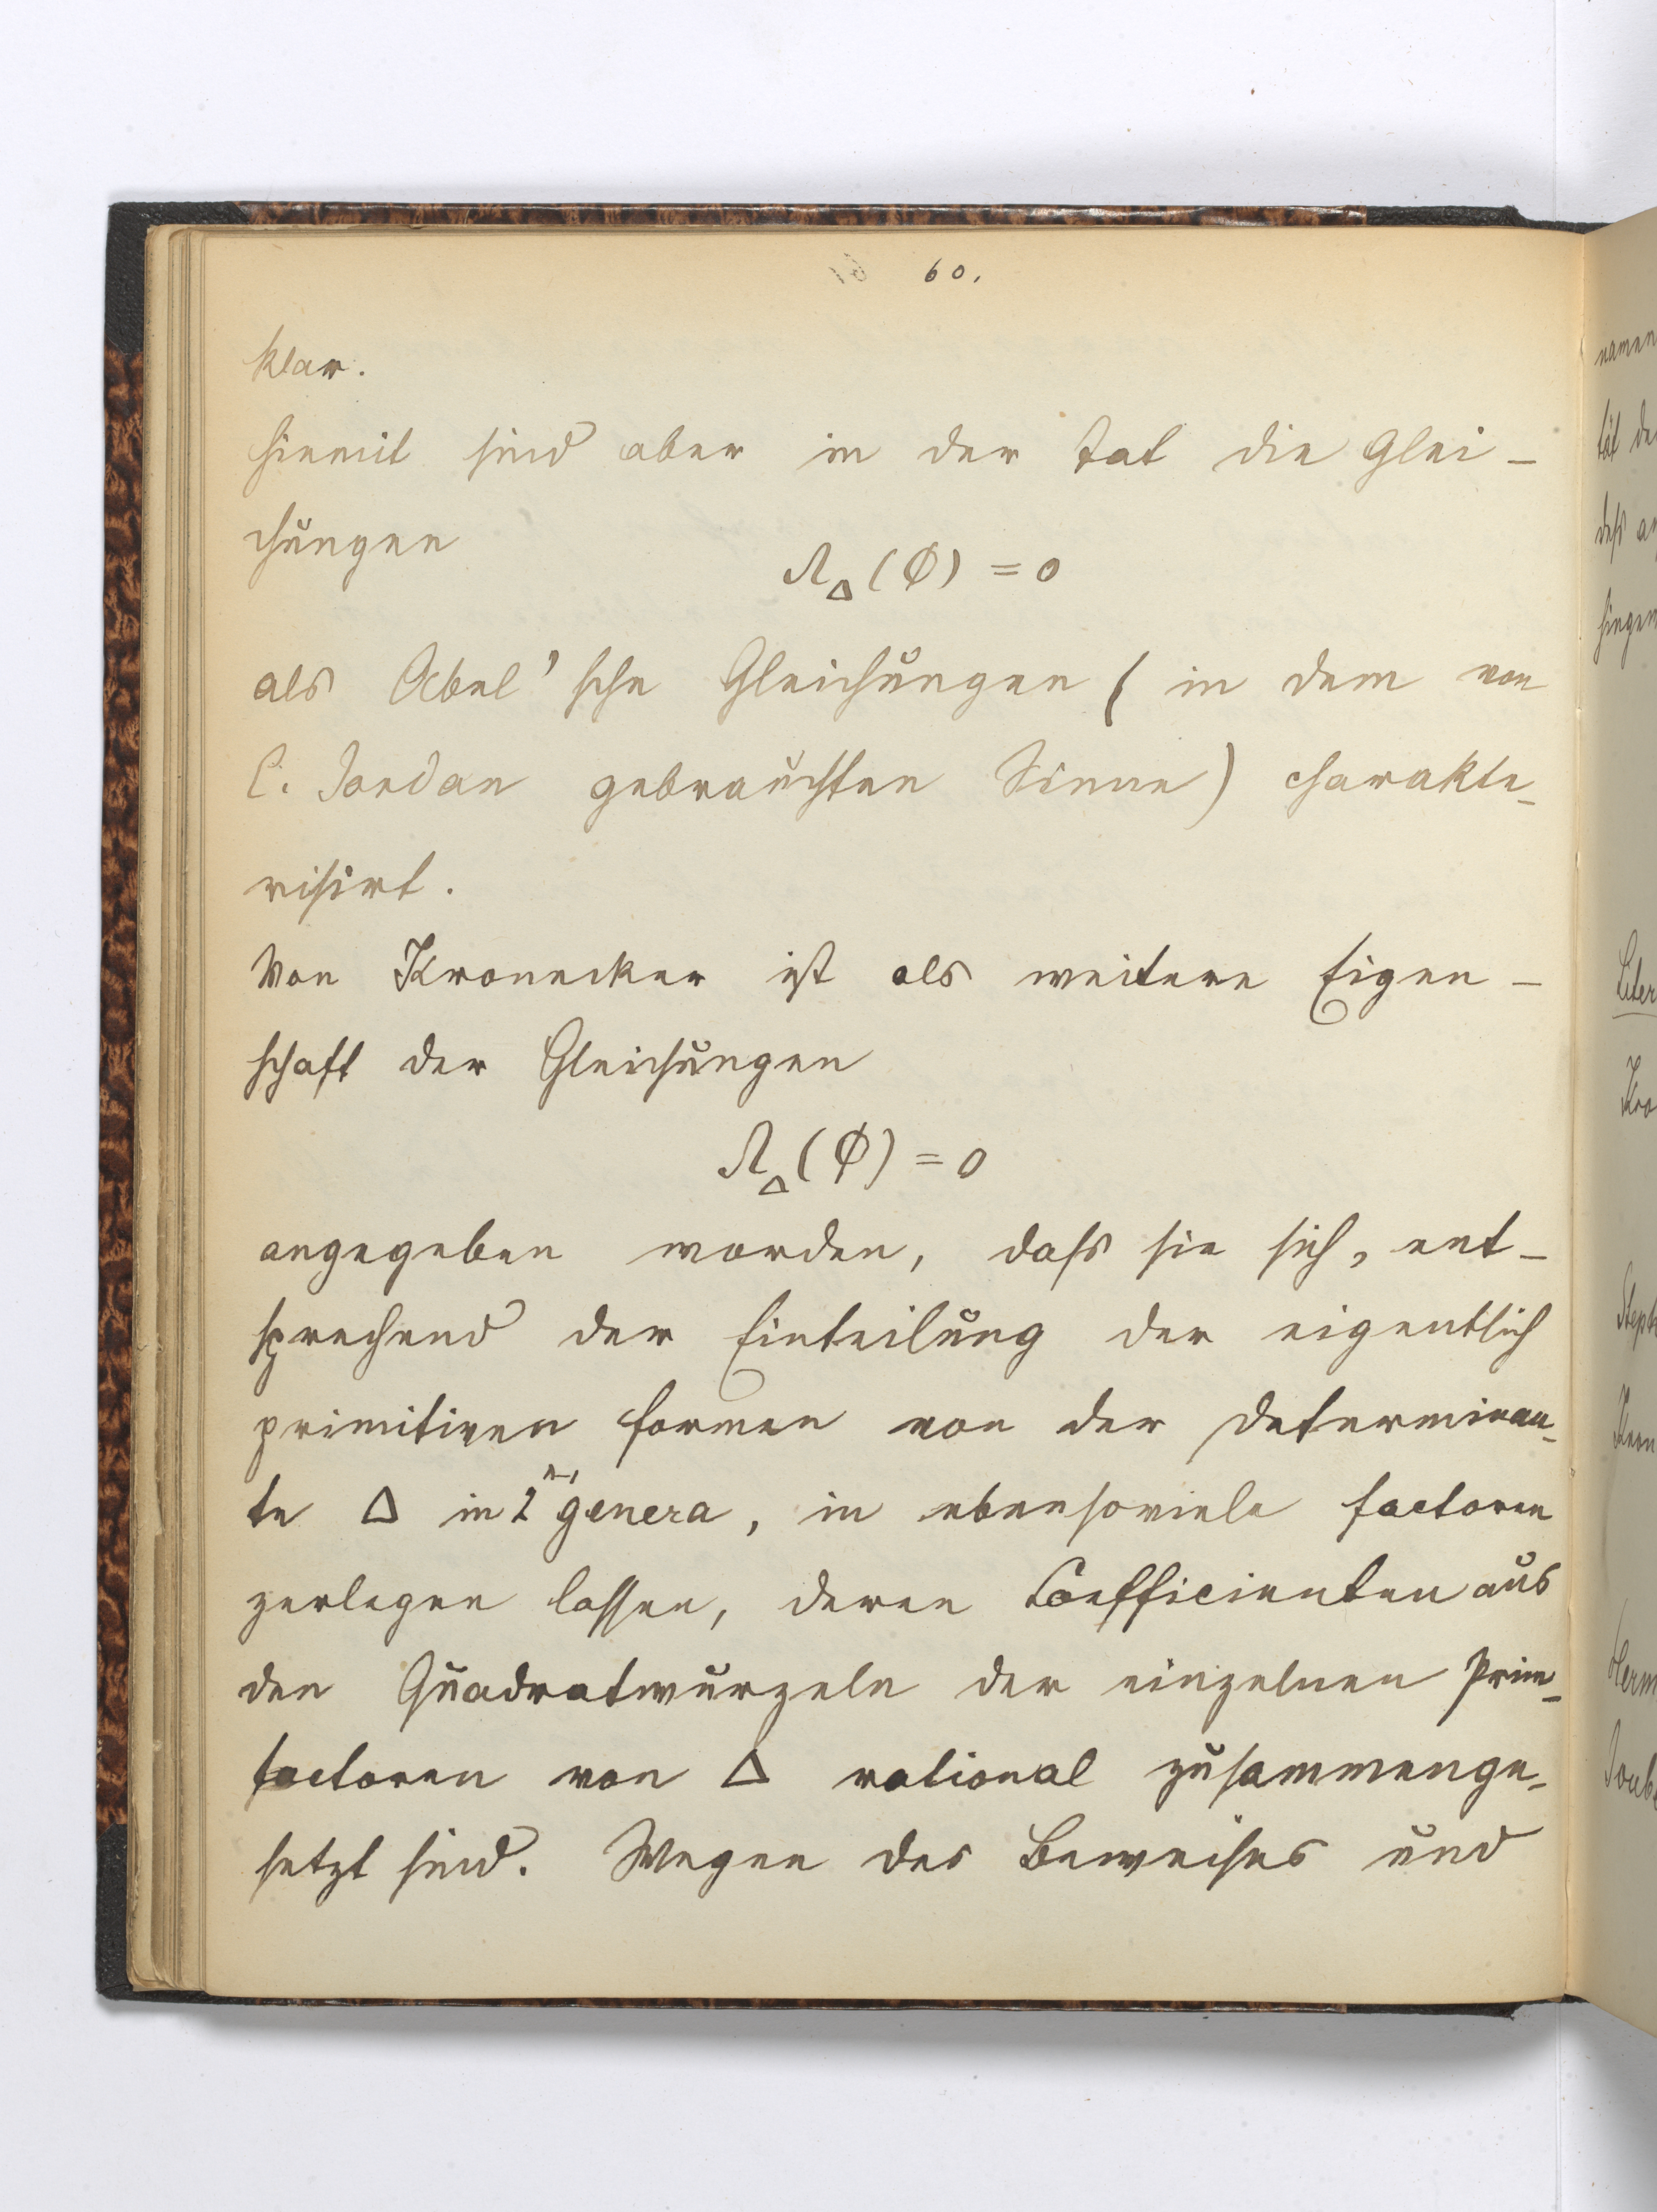 60.
klar.
Hiemit sind aber in der Tat die Glei-
chungen
Λ_Δ(φ) = 0
als Abel'sche Gleichungen (in dem von
C. Jordan gebrauchten Sinne) charakte-
risirt.
Von Kronecker ist als weitere Eigen-
schaft der Gleichungen
Λ_Δ(φ) = 0
angegeben worden, dass sie sich, ent-
sprechend der Einteilung der eigentlich
primitiven Formen von der Determinan-
te Δ in 2 genera, in ebensoviele Factoren
zerlegen lassen, deren Coefficienten aus
den Quadratwurzeln der einzelnen Prim-
factoren von Δ rational zusammenge-
setzt sind. Wegen des Beweises und